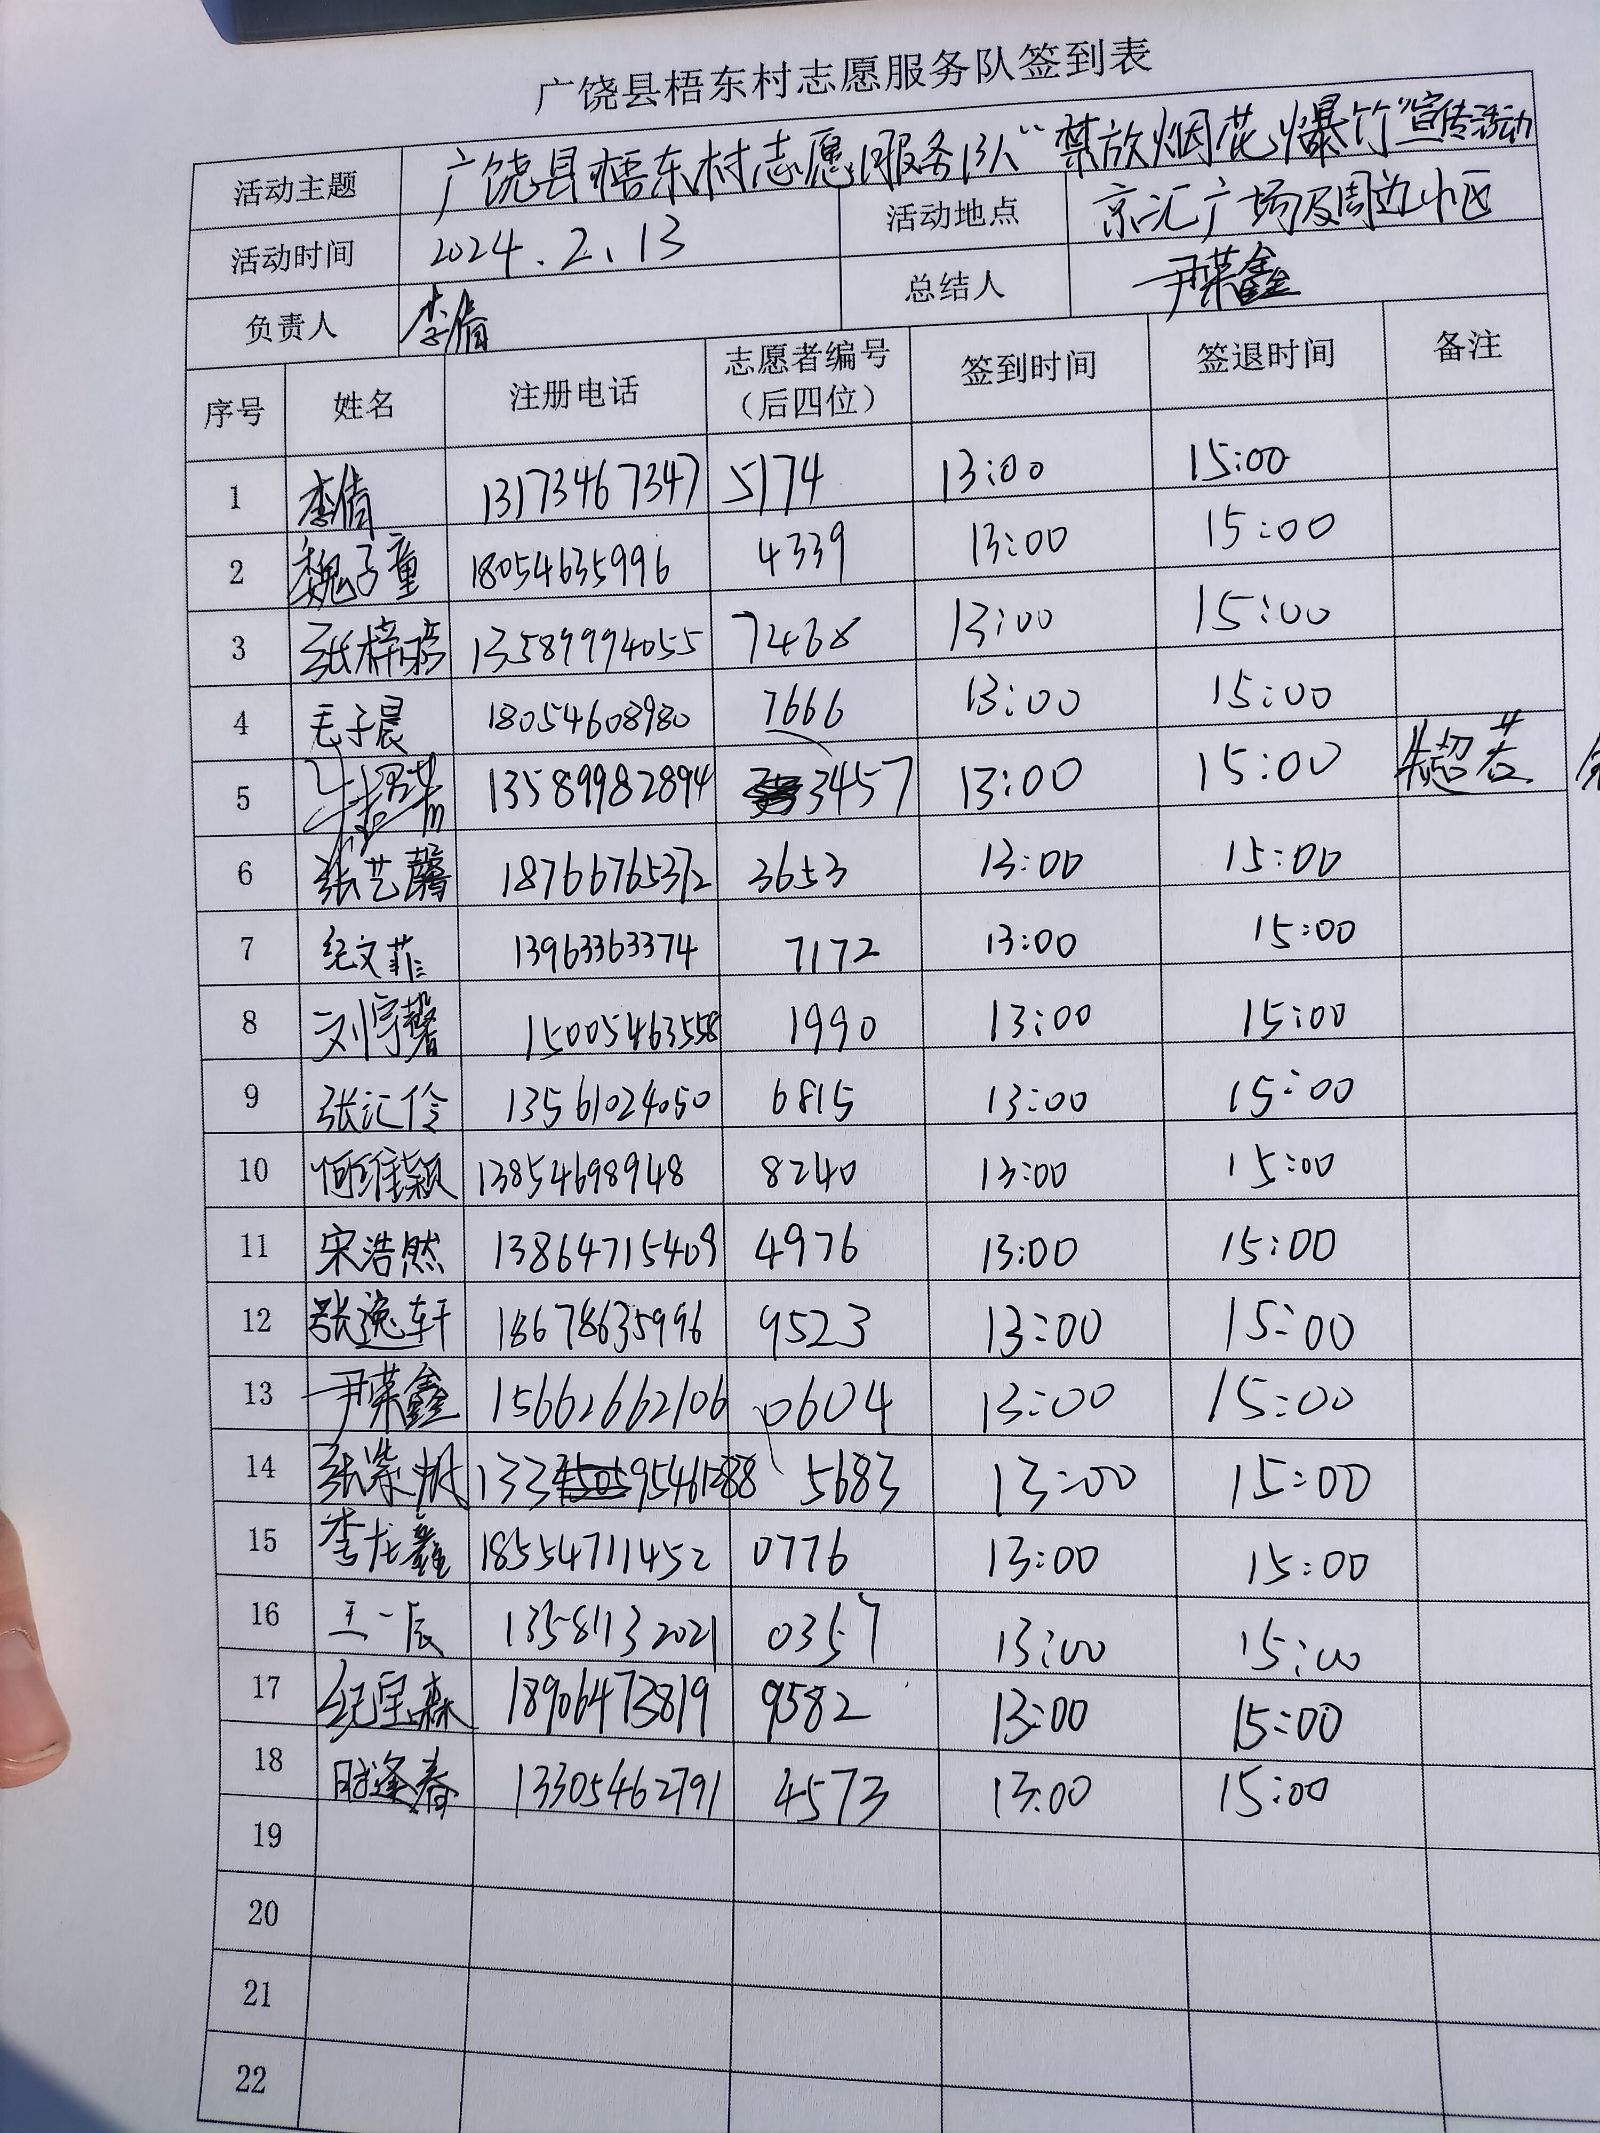 广饶县梧东村志愿服务队签到表
活动主题 广饶县梧东村志愿服务队“禁放烟花爆竹”宣传活动
活动时间 2024.2.13 活动地点 京汇广场及周边小区
负责人 李倩 总结人 尹荣鑫
序号 姓名 注册电话 志愿者编号（后四位） 签到时间 签退时间 备注
1 李倩 13173467347 5174 13:00 15:00
2 魏子童 18054635996 4339 13:00 15:00
3 张梓 13589994055 7468 13:00 15:00
4 毛子晨 18054608980 7666 13:00 15:00
5 13589982894 3457 13:00 15:00 朱超若
6 张艺馨 18766765372 3653 13:00 15:00
7 纪文菲 13963363374 7172 13:00 15:00
8 刘宇馨 15005463558 1990 13:00 15:00
9 张汇伶 13561024050 6815 13:00 15:00
10 何维颖 13854698948 8240 13:00 15:00
11 宋浩然 13864715409 4976 13:00 15:00
12 张逸轩 18678635996 9523 13:00 15:00
13 尹荣鑫 15662662106 0604 13:00 15:00
14 张紫帆 13395461288 5683 13:00 15:00
15 李龙鑫 18554711452 0776 13:00 15:00
16 王一辰 13581132021 0357 13:00 15:00
17 纪宝森 18906473819 9582 13:00 15:00
18 逢春 13305462791 4573 13:00 15:00
19
20
21
22